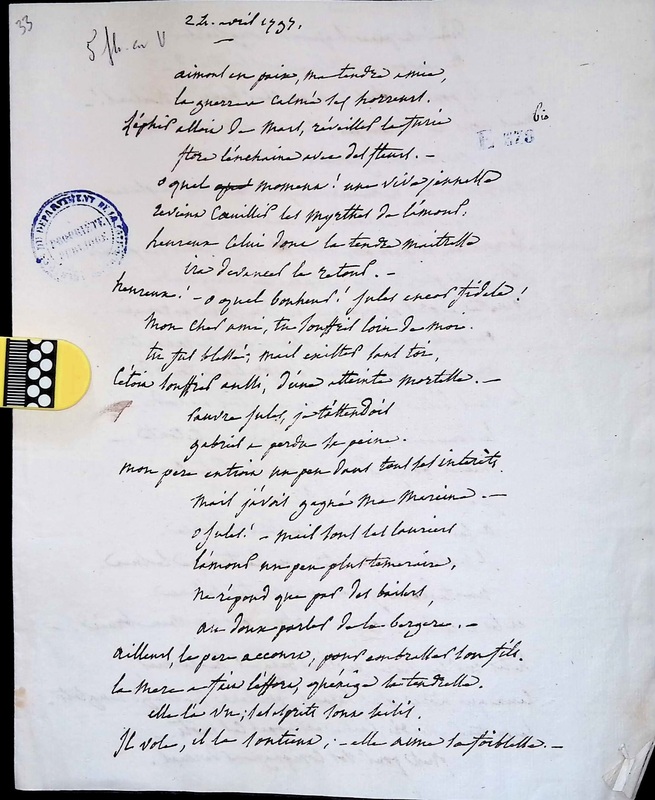 33
24. avril 1797.
5 fl. en V
aimons en paix, ma tendre amie,
la guerre a calmé ses horreurs.
Zéphir assoie de Mars, réveillé la furie
flore l'enchaine avec des fleurs. —
o quel moment ! une vive jeunesse
revient Cœuillir les myrthes de l'amour,
heureux Celui dont la tendre maitresse
ira devancer le retour. —
heureux ! — o quel bonheur ! jules encor fidele !
Mon cher ami, tu souffris loin de moi.
tu fus blessé ; mais exister sans toi,
C'étoit souffrir aussi, d'une atteinte mortelle. —
pauvre jules, je t'attendois
gabriel a perdu sa peine.
mon pere entroit un peu dans tous ses interêts
Mais j'avois gagné ma Mareine. —
o jules ! — mais sous les lauriers
l'amour un peu plus temeraire,
ne répond que par des baisers,
au doux parler de la bergere. —
ailleurs, le pere accourt, pour embrasser son fils.
la mere a fait l'effort, qu'exige la tendresse.
elle l'a vu ; ses esprits sont saisis.
Il vole, il la soutient ; — elle aime sa foiblesse. —
Bio
E 378
DÉPARTEMENT DE LA
PROPRIÉTÉ
PUBLIQUE